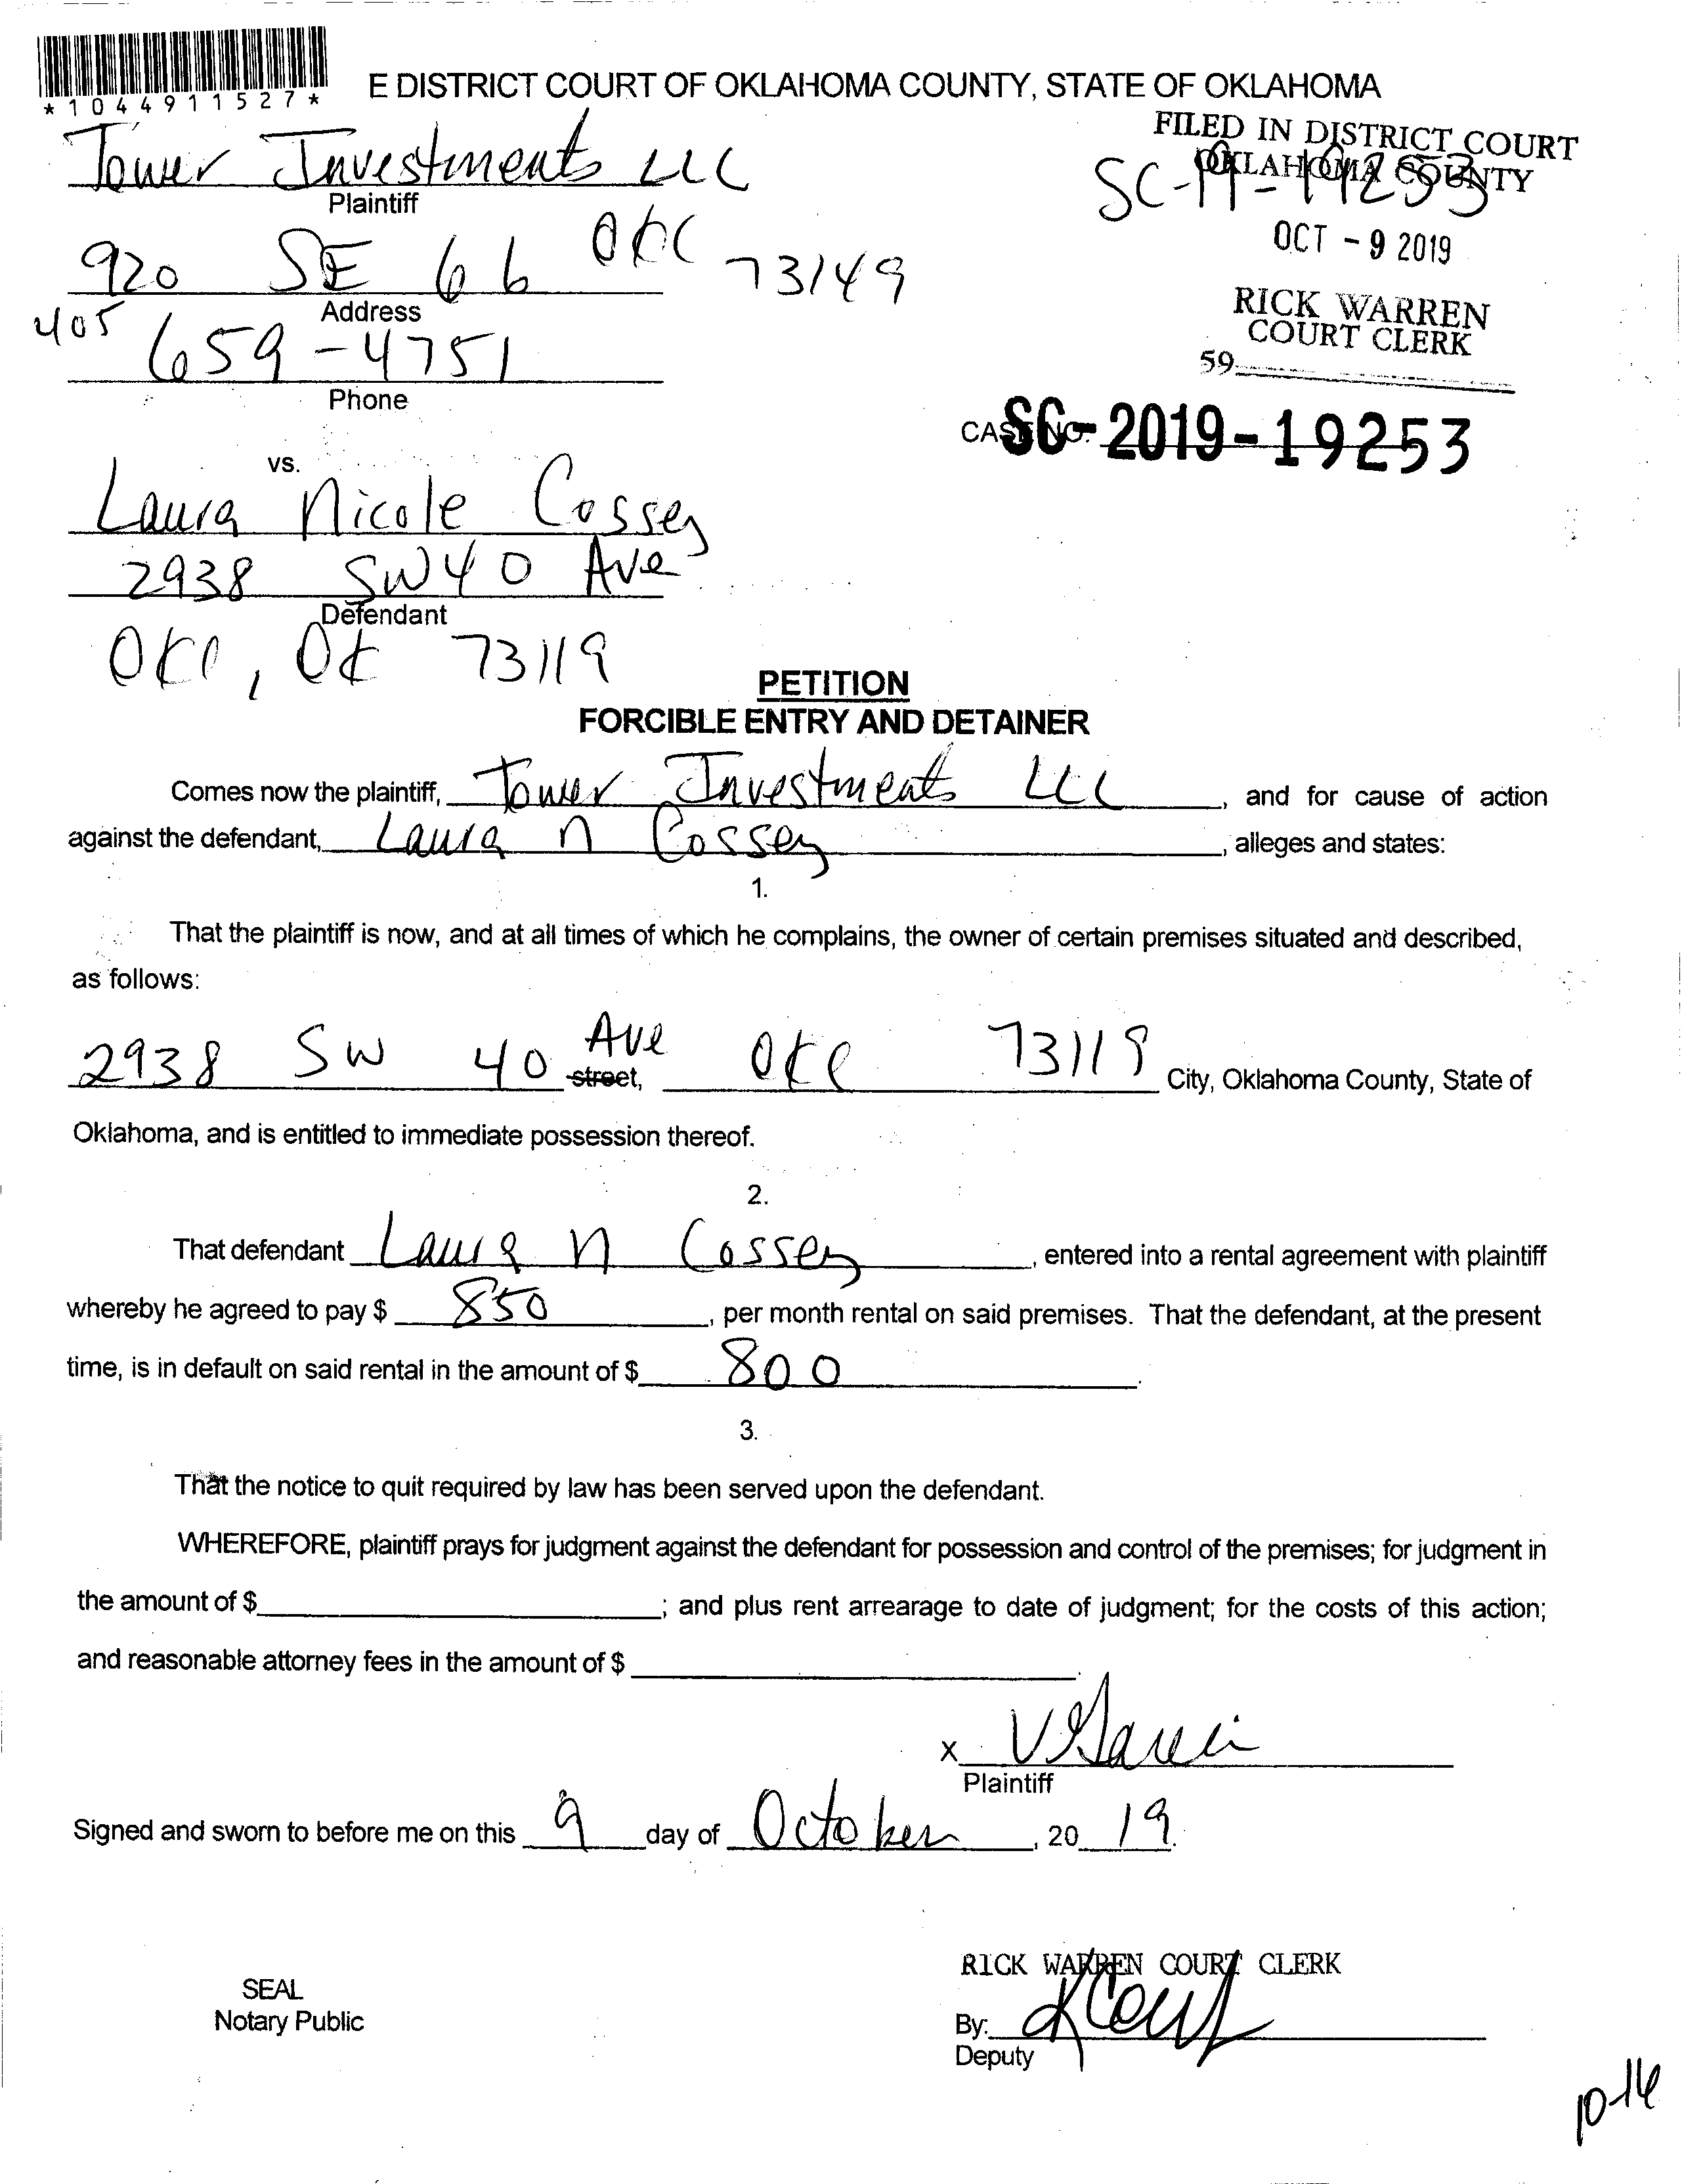 *1044911527*
E DISTRICT COURT OF OKLAHOMA COUNTY, STATE OF OKLAHOMA
FILED IN DISTRICT COURT
OKLAHOMA COUNTY
Tower Investments LLC
SC-19-19253
Plaintiff
OCT - 9 2019
920 SE 66 OKC 73149
Address
RICK WARREN
COURT CLERK
405 659-4751
59
Phone
CASE NO. SC-2019-19253
vs.
Laura Nicole Cossey
2938 SW 40 Ave
Defendant
OKC, OK 73119
PETITION
FORCIBLE ENTRY AND DETAINER
Comes now the plaintiff, Tower Investments LLC, and for cause of action
against the defendant, Laura n Cossey, alleges and states:
1.
That the plaintiff is now, and at all times of which he complains, the owner of certain premises situated and described,
as follows:
2938 SW 40 Ave street, OKC 73119 City, Oklahoma County, State of
Oklahoma, and is entitled to immediate possession thereof.
2.
That defendant Laura n Cossey, entered into a rental agreement with plaintiff
whereby he agreed to pay $ 850, per month rental on said premises. That the defendant, at the present
time, is in default on said rental in the amount of $ 800.
3.
That the notice to quit required by law has been served upon the defendant.
WHEREFORE, plaintiff prays for judgment against the defendant for possession and control of the premises; for judgment in
the amount of $ ; and plus rent arrearage to date of judgment; for the costs of this action;
and reasonable attorney fees in the amount of $
x V Garcia
Plaintiff
Signed and sworn to before me on this 9 day of October, 2019.
RICK WARREN COURT CLERK
SEAL
Notary Public
By:
Deputy
10-16